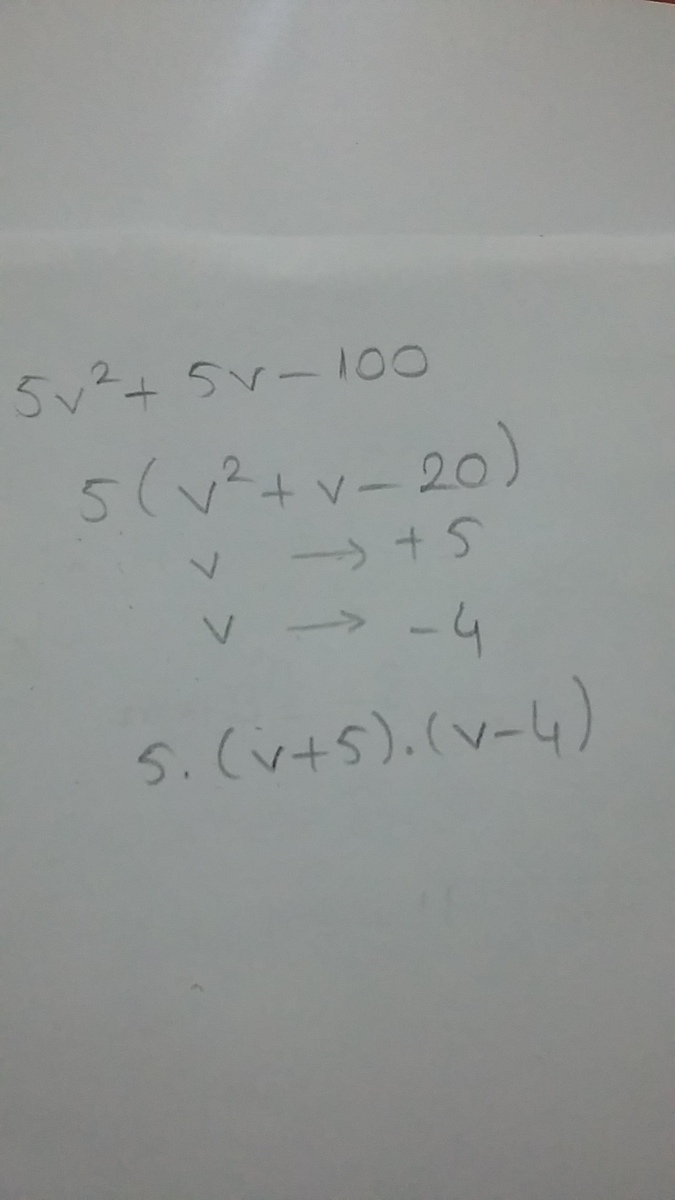 5v²+ 5v-100
5(v²+v-20)
v → +5
v → -4
5.(v+5).(v-4)